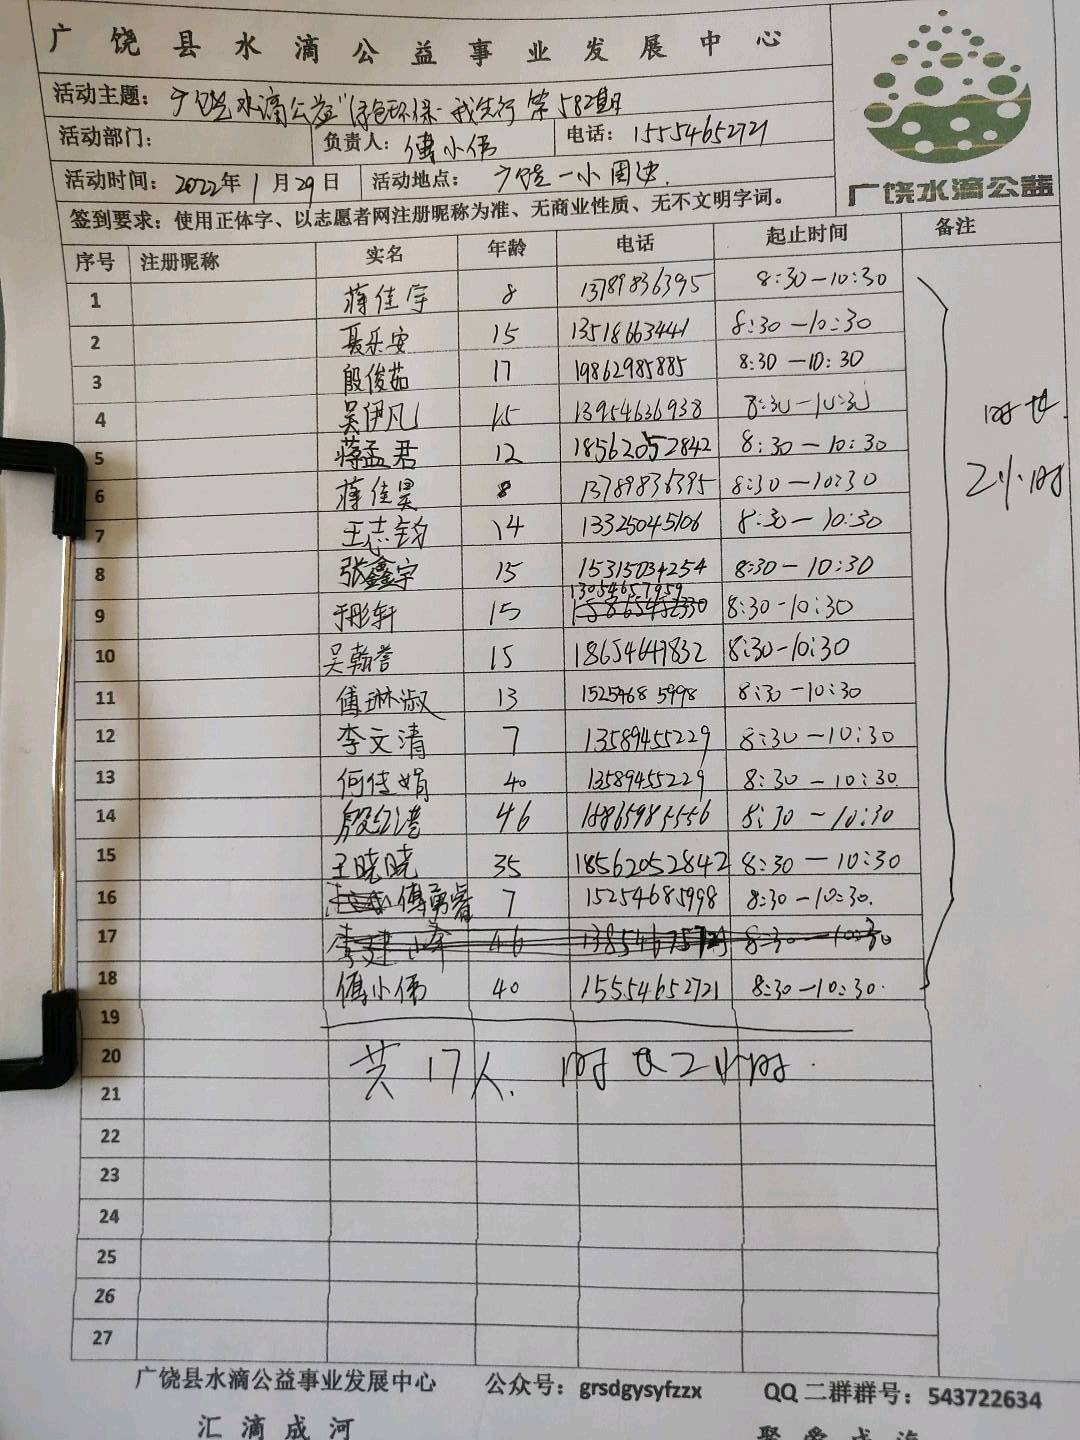 广饶县水滴公益事业发展中心
活动主题：广饶水滴公益"绿色环保·我先行 第582期
活动部门： 负责人：傅小伟 电话：15554652721
活动时间：2022年1月29日 活动地点：广饶一小周边.
广饶水滴公益
签到要求：使用正体字、以志愿者网注册昵称为准、无商业性质、无不文明字词。
序号 注册昵称 实名 年龄 电话 起止时间 备注
1 蒋佳宇 8 13789836395 8:30—10:30
2 聂乐安 15 13518663441 8:30—10:30
3 殷俊茹 17 19862985885 8:30—10:30
4 吴伊凡 15 13954636938 8:30—10:30
时长
5 蒋孟君 12 18562052842 8:30—10:30
2小时
6 蒋佳昊 8 13789836395 8:30—10:30
7 王志钧 14 13325045106 8:30—10:30
8 张鑫宇 15 15315034254 8:30—10:30
13054657959
9 于彤轩 15 15865452330 8:30-10:30
10 吴翰誉 15 18654647832 8:30-10:30
11 傅琳淑 13 15254685998 8:30-10:30
12 李文清 7 13589455229 8:30—10:30
13 何传娟 40 13589455229 8:30—10:30
14 殷红港 46 18865985556 8:30—10:30
15 王晓晓 35 18562052842 8:30—10:30
16 傅勇睿 7 15254685998 8:30—10:30.
17 李建峰 46 8:30—10:30
18 傅小伟 40 15554652721 8:30—10:30.
19
20 共17人. 时长2小时.
21
22
23
24
25
26
27
广饶县水滴公益事业发展中心 公众号：grsdgysyfzzx QQ二群群号：543722634
汇滴成河 聚爱成海